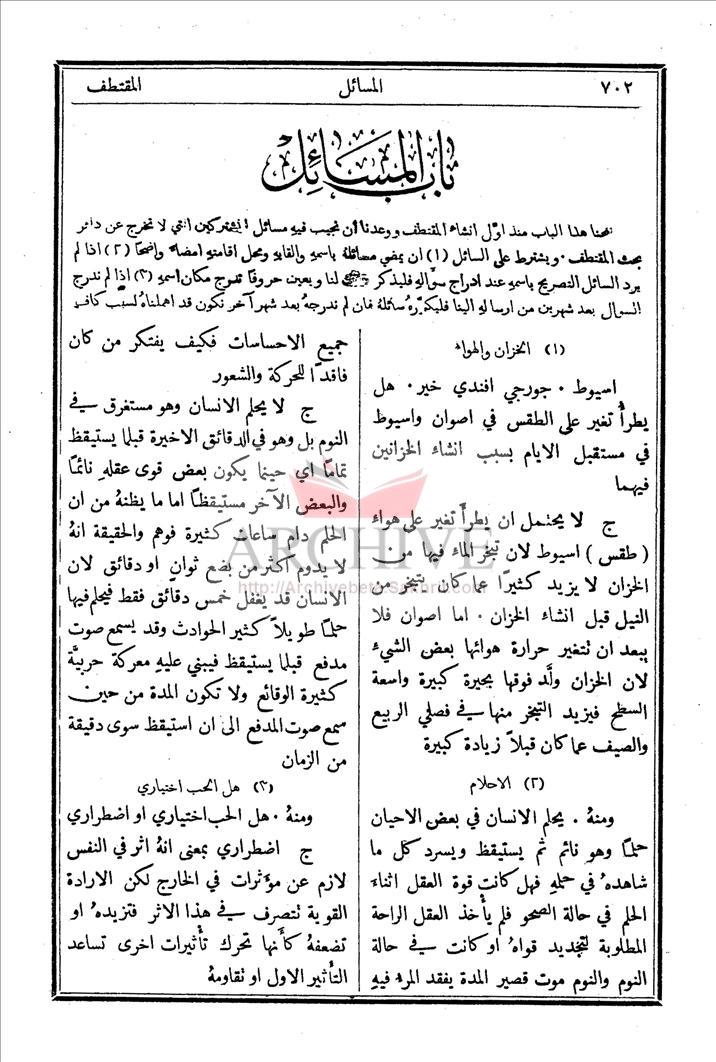 ٧٠٢
المسائل
المقتطف
باب المسائل
فتحنا هذا الباب منذ اول انشاء المقتطف ووعدنا ان نجيب فيهِ مسائل المشتركين التي لا تخرج عن دائرة
بحث المقتطف . ويشترط على السائل (١) ان يمضي مسائلهُ باسمهِ والقابهِ ومحل اقامتهِ امضاءً واضحًا (٢) اذا لم
يرد السائل التصريح باسمهِ عند ادراج سؤالهِ فليذكر ذلك لنا ويعين حروفًا تدرج مكان اسمهِ (٣) اذا لم ندرج
السؤال بعد شهرين من ارسالهِ الينا فليكرّرهُ سائلهُ فان لم ندرجهُ بعد شهر آخر نكون قد اهملناهُ لسبب كافٍ
(١) الخزان والهواء
اسيوط . جورجي افندي خير . هل
يطرأُ تغير على الطقس في اصوان واسيوط
في مستقبل الايام بسبب انشاء الخزانين
فيهما
ج لا يحتمل ان يطرأَ تغير على هواء
( طقس ) اسيوط لان تبخر الماء فيها من
الخزان لا يزيد كثيرًا عما كان يتبخر من
النيل قبل انشاء الخزان . اما اصوان فلا
يبعد ان تتغير حرارة هوائها بعض الشيء
لان الخزان ولَّد فوقها بحيرة كبيرة واسعة
السطح فيزيد التبخر منها في فصلي الربيع
والصيف عما كان قبلاً زيادة كبيرة
(٢) الاحلام
ومنهُ . يحلم الانسان في بعض الاحيان
حلمًا وهو نائم ثم يستيقظ ويسرد كل ما
شاهدهُ في حلمهِ فهل كانت قوة العقل اثناء
الحلم في حالة الصحو فلم يأخذ العقل الراحة
المطلوبة لتجديد قواهُ او كانت في حالة
النوم والنوم موت قصير المدة يفقد المرء فيهِ
جميع الاحساسات فكيف يفتكر من كان
فاقدًا للحركة والشعور
ج لا يحلم الانسان وهو مستغرق في
النوم بل وهو في الدقائق الاخيرة قبلما يستيقظ
تمامًا اي حينما يكون بعض قوى عقلهِ نائمًا
والبعض الآخر مستيقظًا اما ما يظنهُ من ان
الحلم دام ساعات كثيرة فوهم والحقيقة انهُ
لا يدوم اكثر من بضع ثوانٍ او دقائق لان
الانسان قد يغفل خمس دقائق فقط فيحلم فيها
حلمًا طويلاً كثير الحوادث وقد يسمع صوت
مدفع قبلما يستيقظ فيبني عليهِ معركة حربيَّة
كثيرة الوقائع ولا تكون المدة من حين
سمع صوت المدفع الى ان استيقظ سوى دقيقة
من الزمان
(٣) هل الحب اختياري
ومنهُ . هل الحب اختياري او اضطراري
ج اضطراري بمعنى انهُ اثر في النفس
لازم عن مؤثرات في الخارج لكن الارادة
القوية تتصرف في هذا الاثر فتزيدهُ او
تضعفهُ كأنها تحرك تأثيرات اخرى تساعد
التأثير الاول او تقاومهُ
ARCHIVE
http://Archivebeta.Sakhrit.com